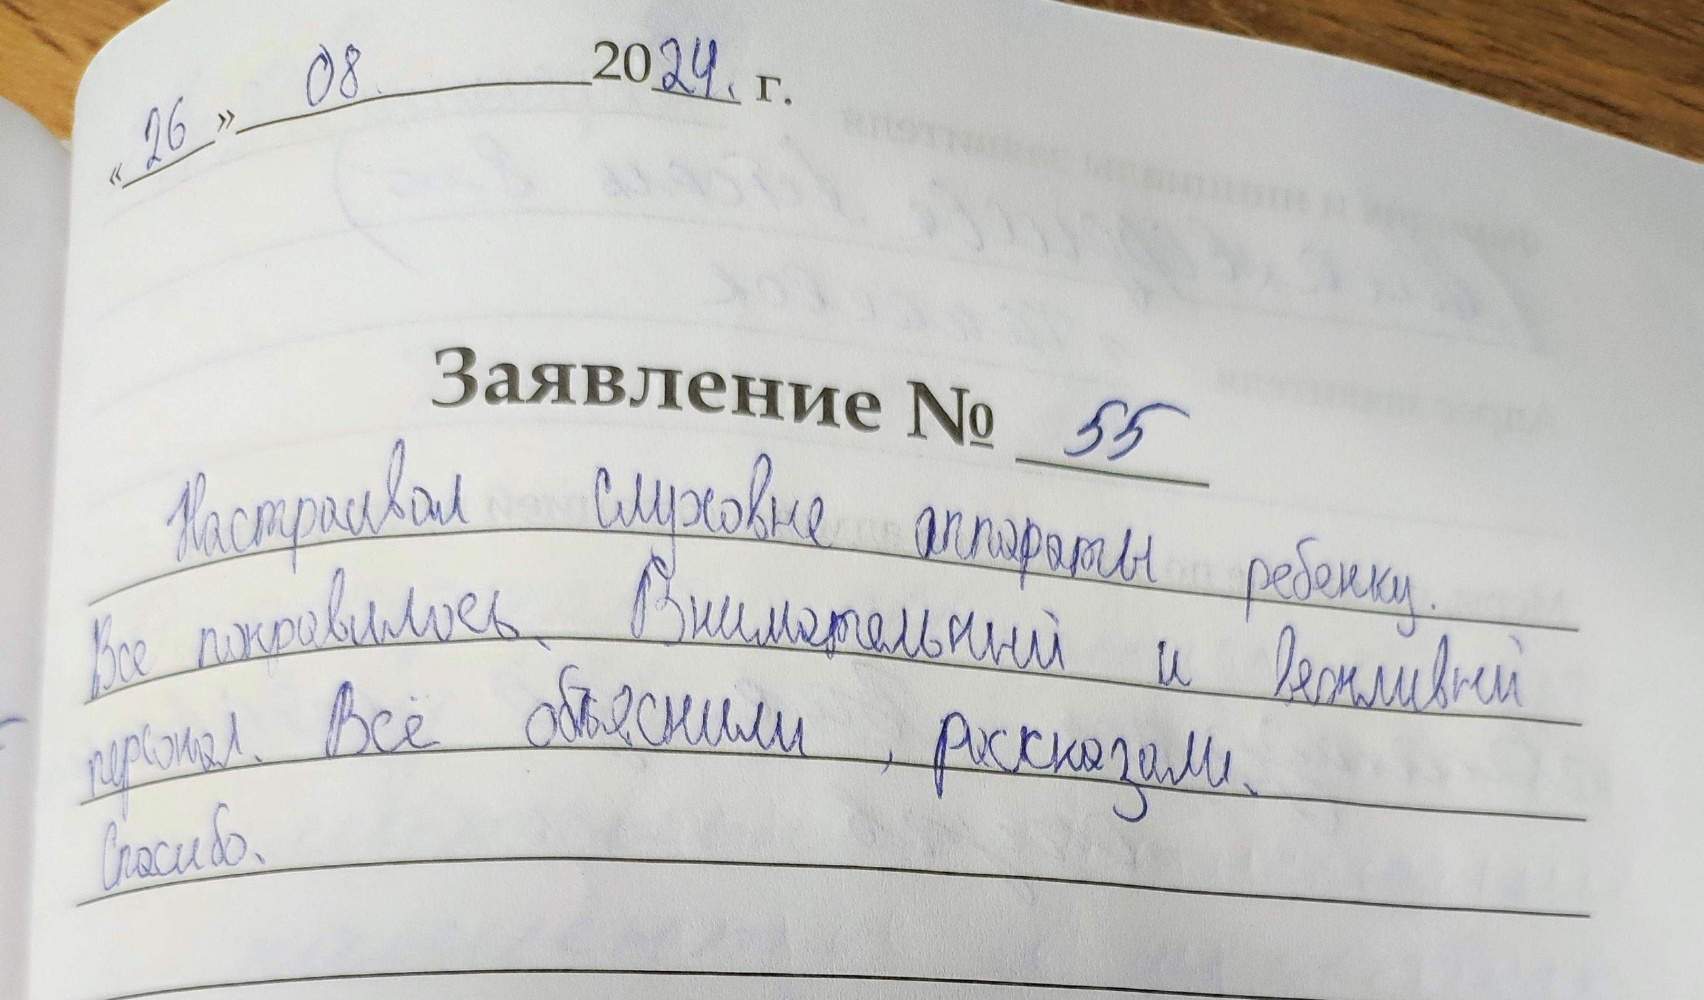 «26» 08. 2024. г.
Заявление № 55
Настраивал слуховые аппараты ребенку.
Все понравилось. Внимательный и вежливый
персонал. Всё объяснили, рассказали.
Спасибо.